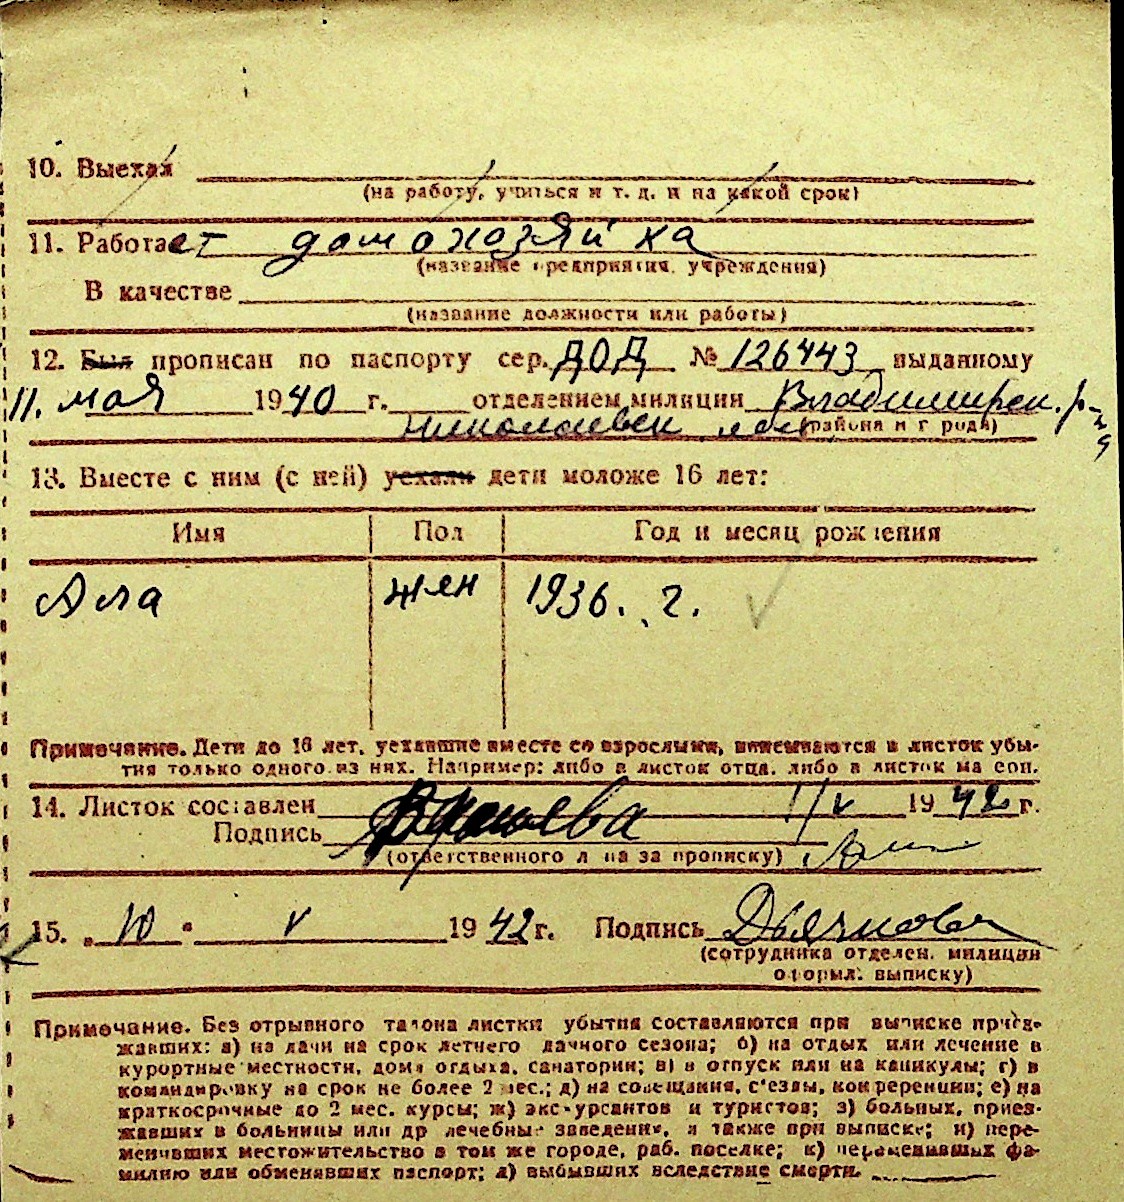 10. Выехал
(на работу, учиться и т. д. и на какой срок)
11. Работает домохозяйка
(название предприятия, учреждения)
В качестве
(название должности или работы)
12. Был прописан по паспорту сер. ДОД № 126443 выданному
11. мая 1940 г. отделением милиции Владимирск. р-на
Николаевск. обл. (района и города)
13. Вместе с ним (с ней) уехали дети моложе 16 лет:
Имя Пол Год и месяц рождения
Ала жен 1936. г.
Примечание. Дети до 16 лет, уехавшие вместе со взрослыми, вписываются в листок убы-
тия только одного из них. Например: либо в листок отца, либо в листок матери.
14. Листок составлен 11/V 1942 г.
Подпись
(ответственного лица за прописку)
15. „10" V 1942 г. Подпись Дьячкова
(сотрудника отделен. милиции
оформл. выписку)
Примечание. Без отрывного талона листки убытия составляются при выписке приез-
жавших: а) на дачи на срок летнего дачного сезона; б) на отдых или лечение в
курортные местности, дома отдыха, санатории; в) в отпуск или на каникулы; г) в
командировку на срок не более 2 мес.; д) на совещания, с'езды, конференции; е) на
краткосрочные до 2 мес. курсы; ж) экскурсантов и туристов; з) больных, приез-
жавших в больницы или др лечебные заведения, а также при выписке; и) пере-
менивших местожительство в том же городе, раб. поселке; к) переменивших фа-
милию или обменявших паспорт; л) выбывших вследствие смерти.